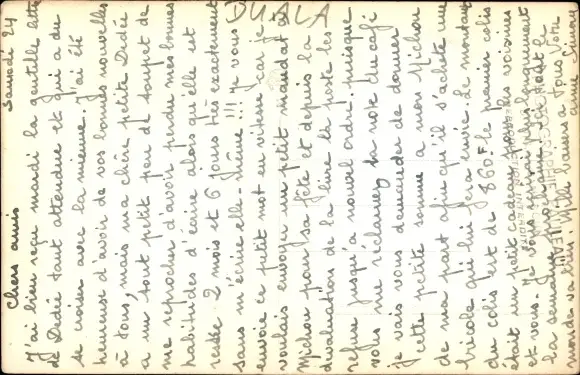 DUALA
Samedi 24
Chers amis
J'ai bien reçu mardi la gentille lettre
de Dédé tant attendue et qui a du
se croiser avec la mienne. J'ai été
heureuse d'avoir de vos bonnes nouvelles
à tous, mais ma chère petite Dédé
a un tout petit peu de toupet de
me reprocher d'avoir perdu mes bonnes
habitudes d'écrire alors qu'elle est
restée 2 mois et 6 jours très exactement
sans m'écrire elle-même !!! Je vous
envoie ce petit mot en vitesse car je
voulais envoyer un petit mandat à
Michou pour sa fête et depuis la
dévaluation de la livre la poste les
refuse jusqu'à nouvel ordre. puisque
vous me réclamez la note du café
je vais vous demander de donner
cette petite somme à mon Michou
de ma part afin qu'il s'achète une
bricole qui lui fera envie. Le montant
du colis est de 860F. le premier colis
était un petit cadeau pour les voisines
et vous. Je vous écrirai plus longuement
la semaine prochaine. Ici tout le
monde va bien. Mille baisers à tous. Votre
amie Simone